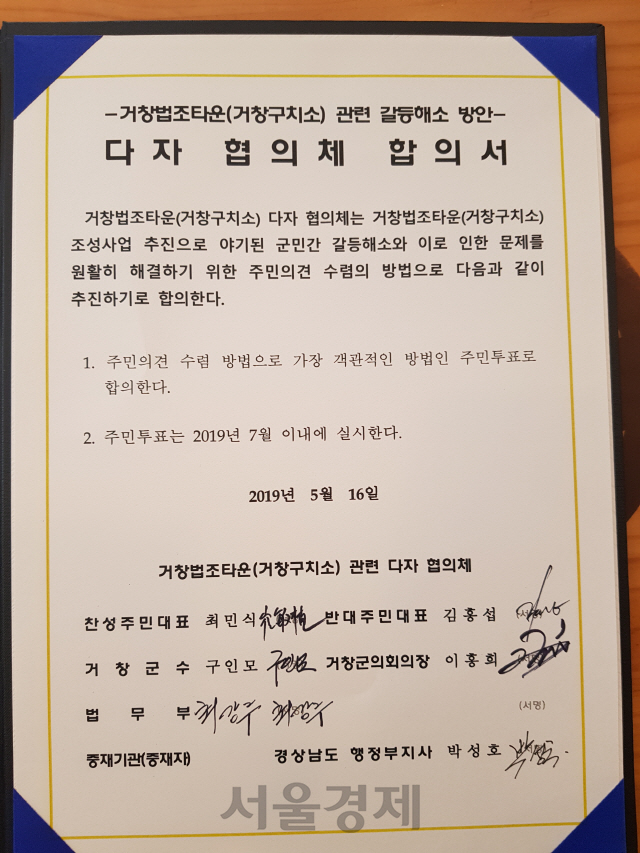 -거창법조타운(거창구치소) 관련 갈등해소 방안-
다자 협의체 합의서
거창법조타운(거창구치소) 다자 협의체는 거창법조타운(거창구치소)
조성사업 추진으로 야기된 군민간 갈등해소와 이로 인한 문제를
원활히 해결하기 위한 주민의견 수렴의 방법으로 다음과 같이
추진하기로 합의한다.
1. 주민의견 수렴 방법으로 가장 객관적인 방법인 주민투표로
합의한다.
2. 주민투표는 2019년 7월 이내에 실시한다.
2019년 5월 16일
거창법조타운(거창구치소) 관련 다자 협의체
찬성주민대표 최민식 반대주민대표 김홍섭
거창군수 구인모 구인모 거창군의회의장 이홍희
법무부 최강주 최강주 (서명)
중재기관(중재자) 경상남도 행정부지사 박성호
서울경제